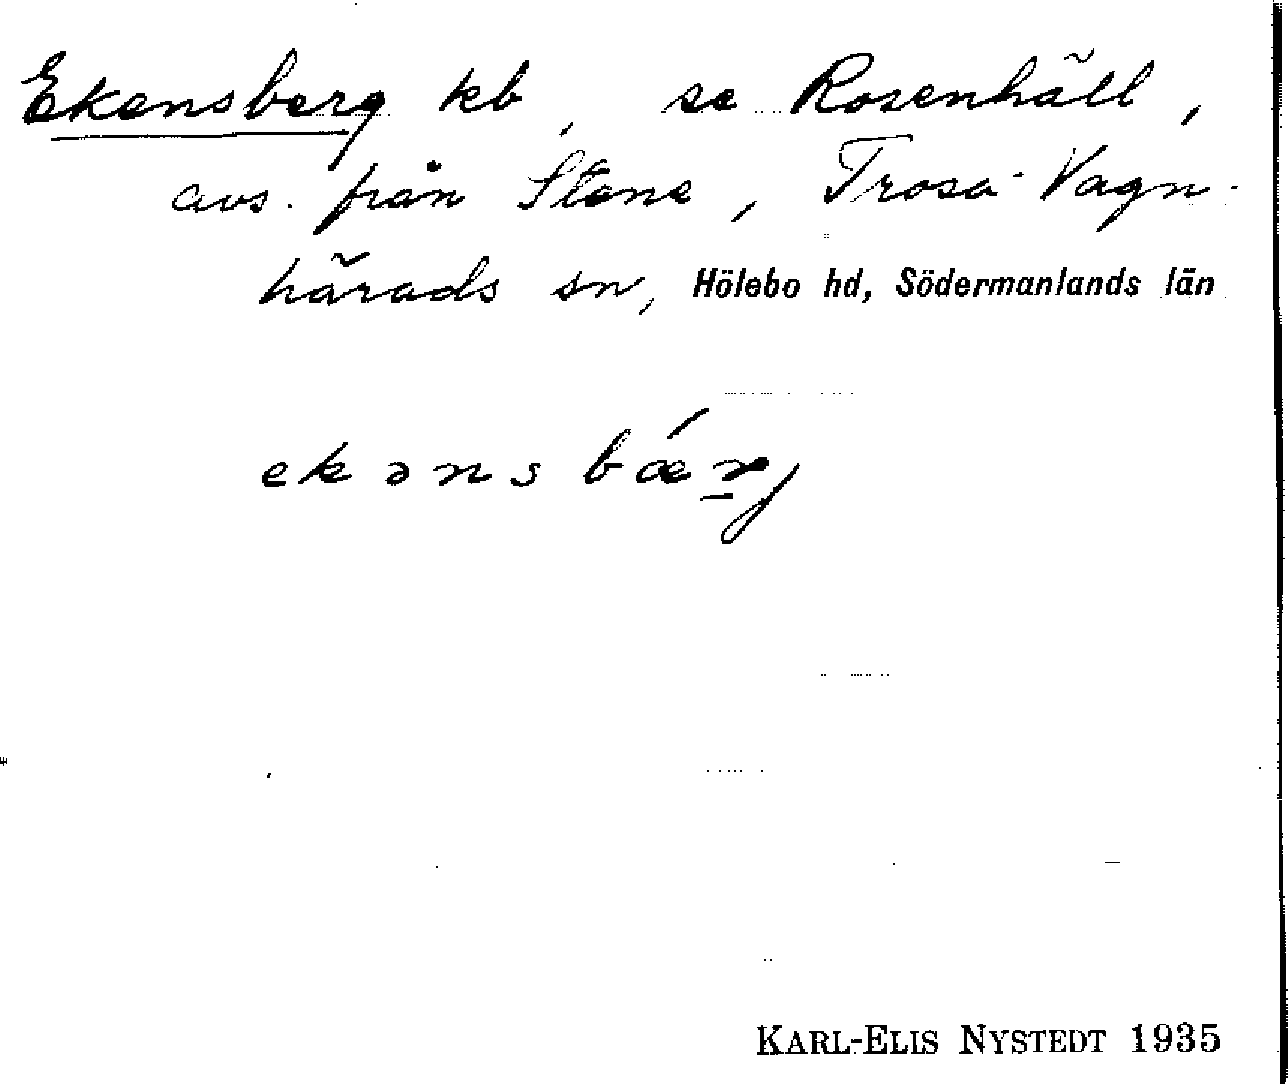 Ekensberg kb, se Rosenhäll,
avs. från Stene, Trosa-Vagn-
härads sn, Hölebo hd, Södermanlands län
ekənsbǽrj
KARL-ELIS NYSTEDT 1935